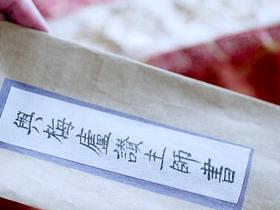 與梅廬讃主師書